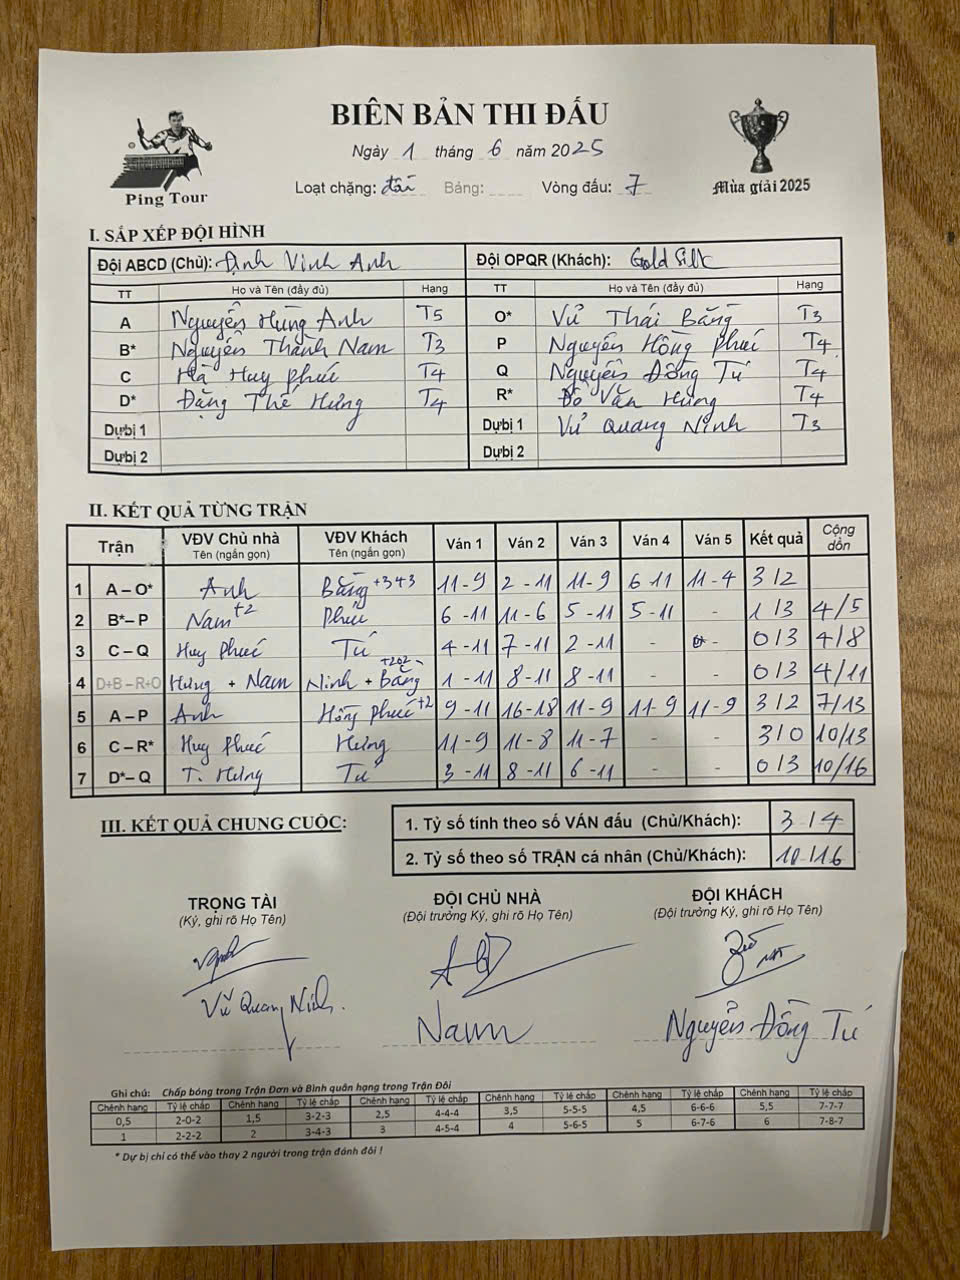 BIÊN BẢN THI ĐẤU
Ngày 1 tháng 6 năm 2025
Ping Tour
Loạt chặng: đôi Bảng: Vòng đấu: 7
Mùa giải 2025
I. SẮP XẾP ĐỘI HÌNH
Đội ABCD (Chủ): Định Vinh Anh Đội OPQR (Khách): Gold Silk
TT Họ và Tên (đầy đủ) Hạng TT Họ và Tên (đầy đủ) Hạng
A Nguyễn Hùng Anh T5 O* Vũ Thái Bằng T3
B* Nguyễn Thành Nam T3 P Nguyễn Hồng Phúc T4
C Hà Huy Phúc T4 Q Nguyễn Đồng Tú T4
D* Đặng Thế Hưng T4 R* Đỗ Văn Hưng T4
Dự bị 1 Dự bị 1 Vũ Quang Ninh T3
Dự bị 2 Dự bị 2
II. KẾT QUẢ TỪNG TRẬN
Trận VĐV Chủ nhà Tên (ngắn gọn) VĐV Khách Tên (ngắn gọn) Ván 1 Ván 2 Ván 3 Ván 4 Ván 5 Kết quả Cộng dồn
1 A – O* Anh Bằng +343 11-9 2-11 11-9 6-11 11-4 3/2
2 B*– P Nam +2 Phúc 6-11 11-6 5-11 5-11 - 1/3 4/5
3 C – Q Huy Phúc Tú 4-11 7-11 2-11 - - 0/3 4/8
4 D+B – R+O Hưng + Nam Ninh + Bằng +202 1-11 8-11 8-11 - - 0/3 4/11
5 A – P Anh Hồng Phúc +2 9-11 16-18 11-9 11-9 11-9 3/2 7/13
6 C – R* Huy Phúc Hưng 11-9 11-8 11-7 - - 3/0 10/13
7 D*– Q T. Hưng Tú 3-11 8-11 6-11 - - 0/3 10/16
III. KẾT QUẢ CHUNG CUỘC:
1. Tỷ số tính theo số VÁN đấu (Chủ/Khách): 3/4
2. Tỷ số theo số TRẬN cá nhân (Chủ/Khách): 10/16
TRỌNG TÀI ĐỘI CHỦ NHÀ ĐỘI KHÁCH
(Ký, ghi rõ Họ Tên) (Đội trưởng Ký, ghi rõ Họ Tên) (Đội trưởng Ký, ghi rõ Họ Tên)
Vũ Quang Ninh. Nam Nguyễn Đồng Tú
Ghi chú: Chấp bóng trong Trận Đơn và Bình quân hạng trong Trận Đôi
Chênh hạng Tỷ lệ chấp Chênh hạng Tỷ lệ chấp Chênh hạng Tỷ lệ chấp Chênh hạng Tỷ lệ chấp Chênh hạng Tỷ lệ chấp Chênh hạng Tỷ lệ chấp
0,5 2-0-2 1,5 3-2-3 2,5 4-4-4 3,5 5-5-5 4,5 6-6-6 5,5 7-7-7
1 2-2-2 2 3-4-3 3 4-5-4 4 5-6-5 5 6-7-6 6 7-8-7
* Dự bị chỉ có thể vào thay 2 người trong trận đánh đôi !